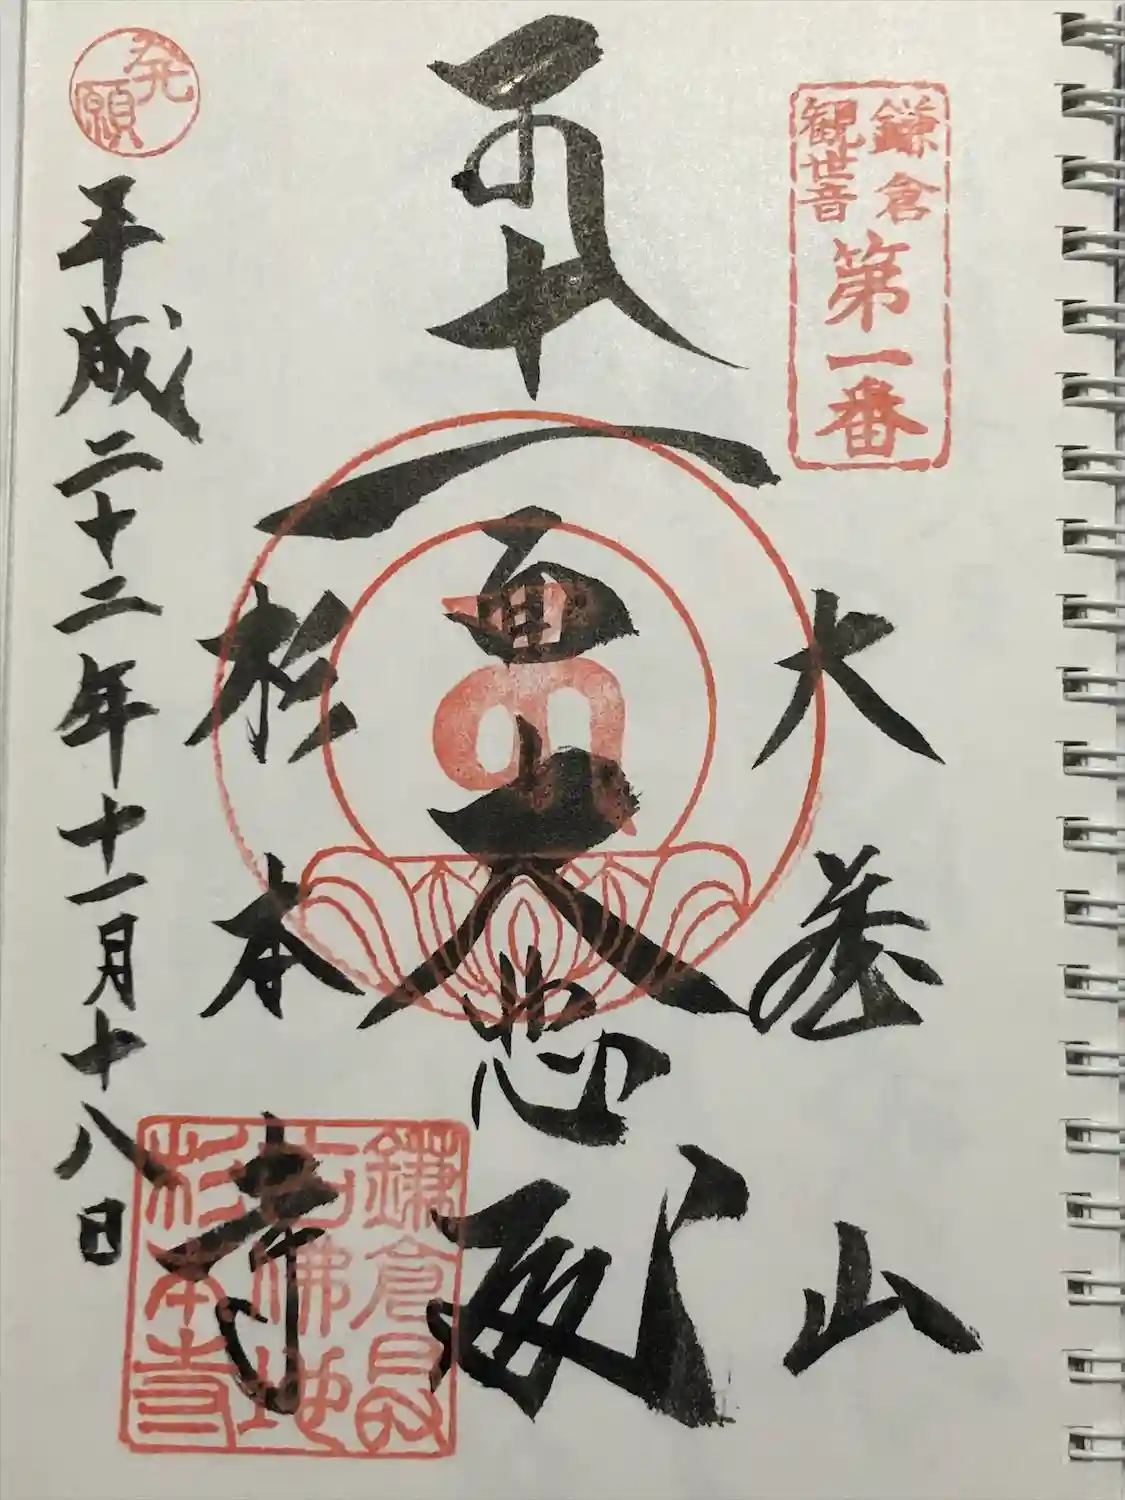 鎌倉
観世音
第一番
大蔵山
十一面大悲殿
杉本寺
発願
平成二十二年十一月十八日
鎌倉最古佛地杉本寺